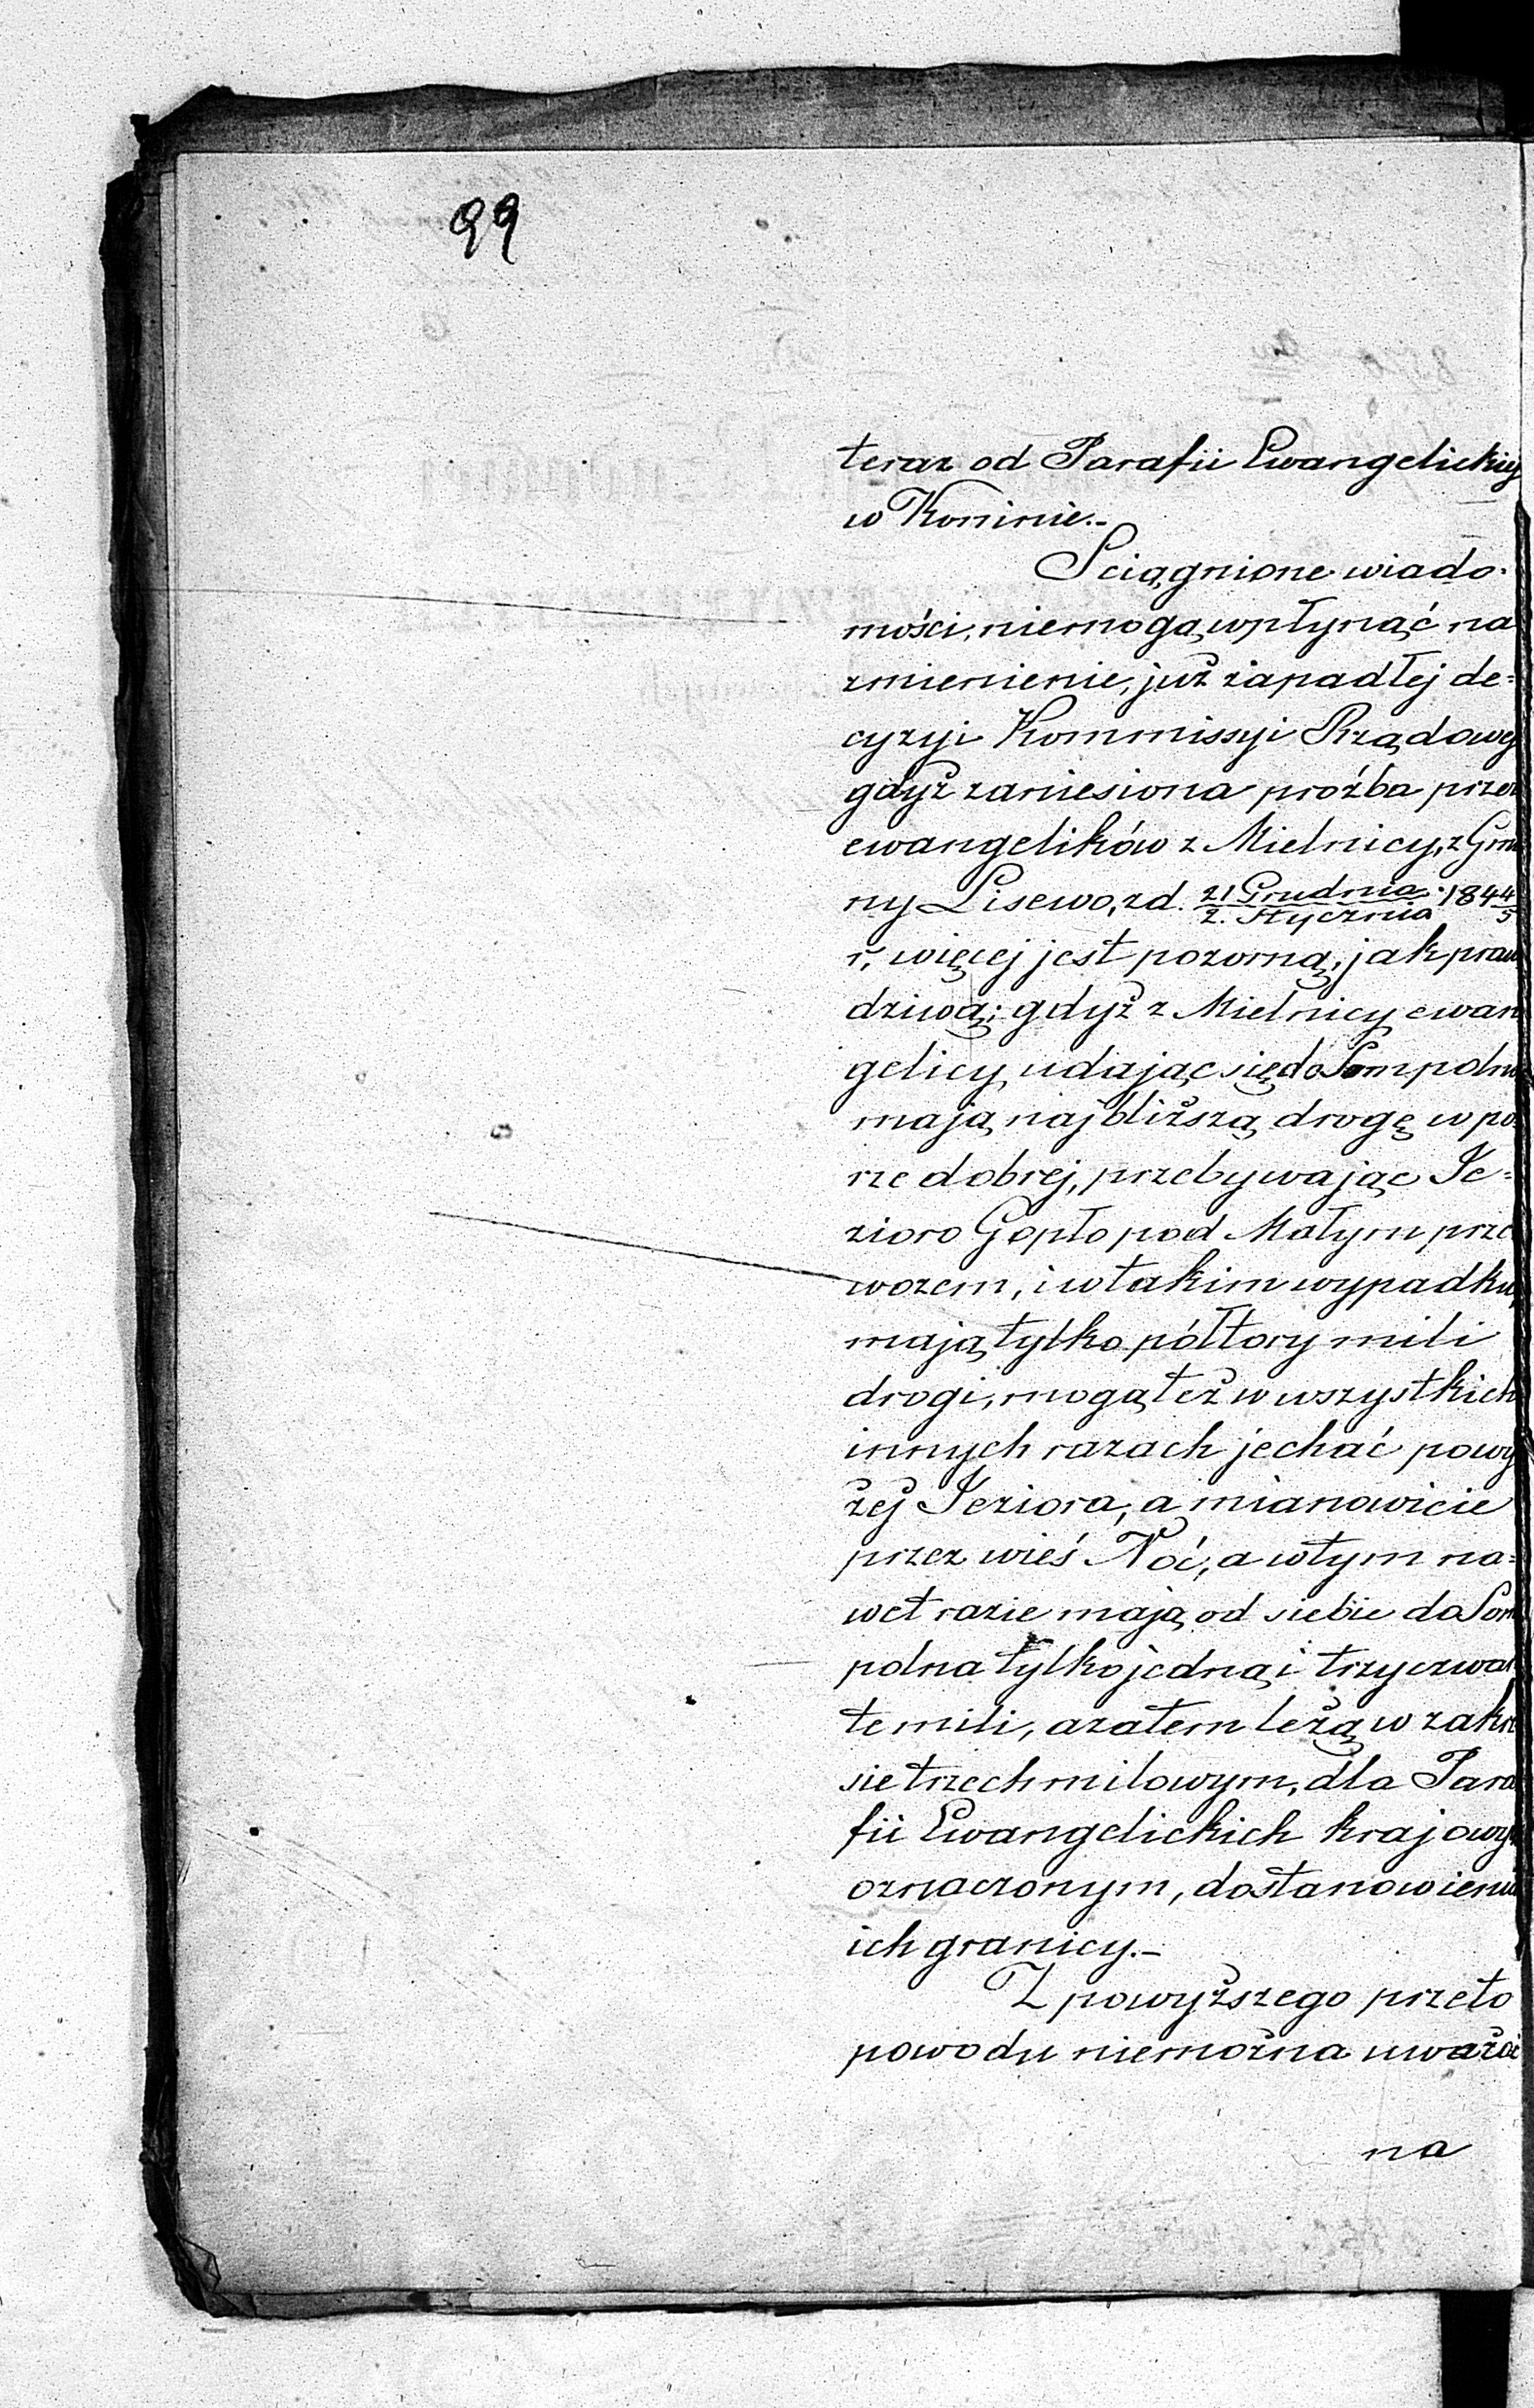 99
teraz od Parafii Ewangelickiey
w Koninie.-
Sciągnione wiado-
mości, niemogą wpłynąć na
zmienienie, już zapadłej de=
cyzyi Kommissyi Rządowej
gdyż zaniesiona prośba przez
ewangelików z Mielnicy, z Gmi
ny Lisewo, z d. 21 Grudnia / 2. Stycznia 1844/5
r, więcej jest pozorną, jak praw
dziwą; gdyż z Mielnicy ewan
gelicy udając się do Sompolna
mają najbliższą drogę w po-
rze dobrej, przebywając Je=
zioro Gopło pod Małym prze
wozem, i w takim wypadku,
mają tylko półtory mili
drogi, mogą też w wszystkich
innych razach jechać powy
żej Jeziora, a mianowicie
przez wieś Noć, a w tym na=
wet razie mają od siebie do Som
polna tylko jedną i trzy czwar
te mili, a zatem leżą w zakre
sie trzechmilowym, dla Para
fii Ewangelickich krajowych
oznaczonym, do stanowienia
ich granicy.-
Z powyższego przeto
powodu niemożna uważać
na